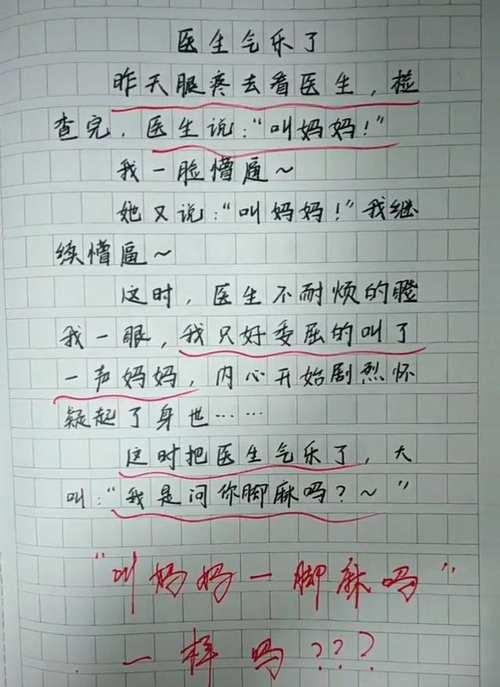 医生气乐了
昨天腿疼去看医生，检
查完，医生说：“叫妈妈！”
我一脸懵逼～
她又说：“叫妈妈！”我继
续懵逼～
这时，医生不耐烦的瞪
我一眼，我只好委屈的叫了
一声妈妈，内心开始剧烈怀
疑起了身世……
这时把医生气乐了，大
叫：“我是问你脚麻吗？～”
“叫妈妈一脚麻吗”
一样吗？？？